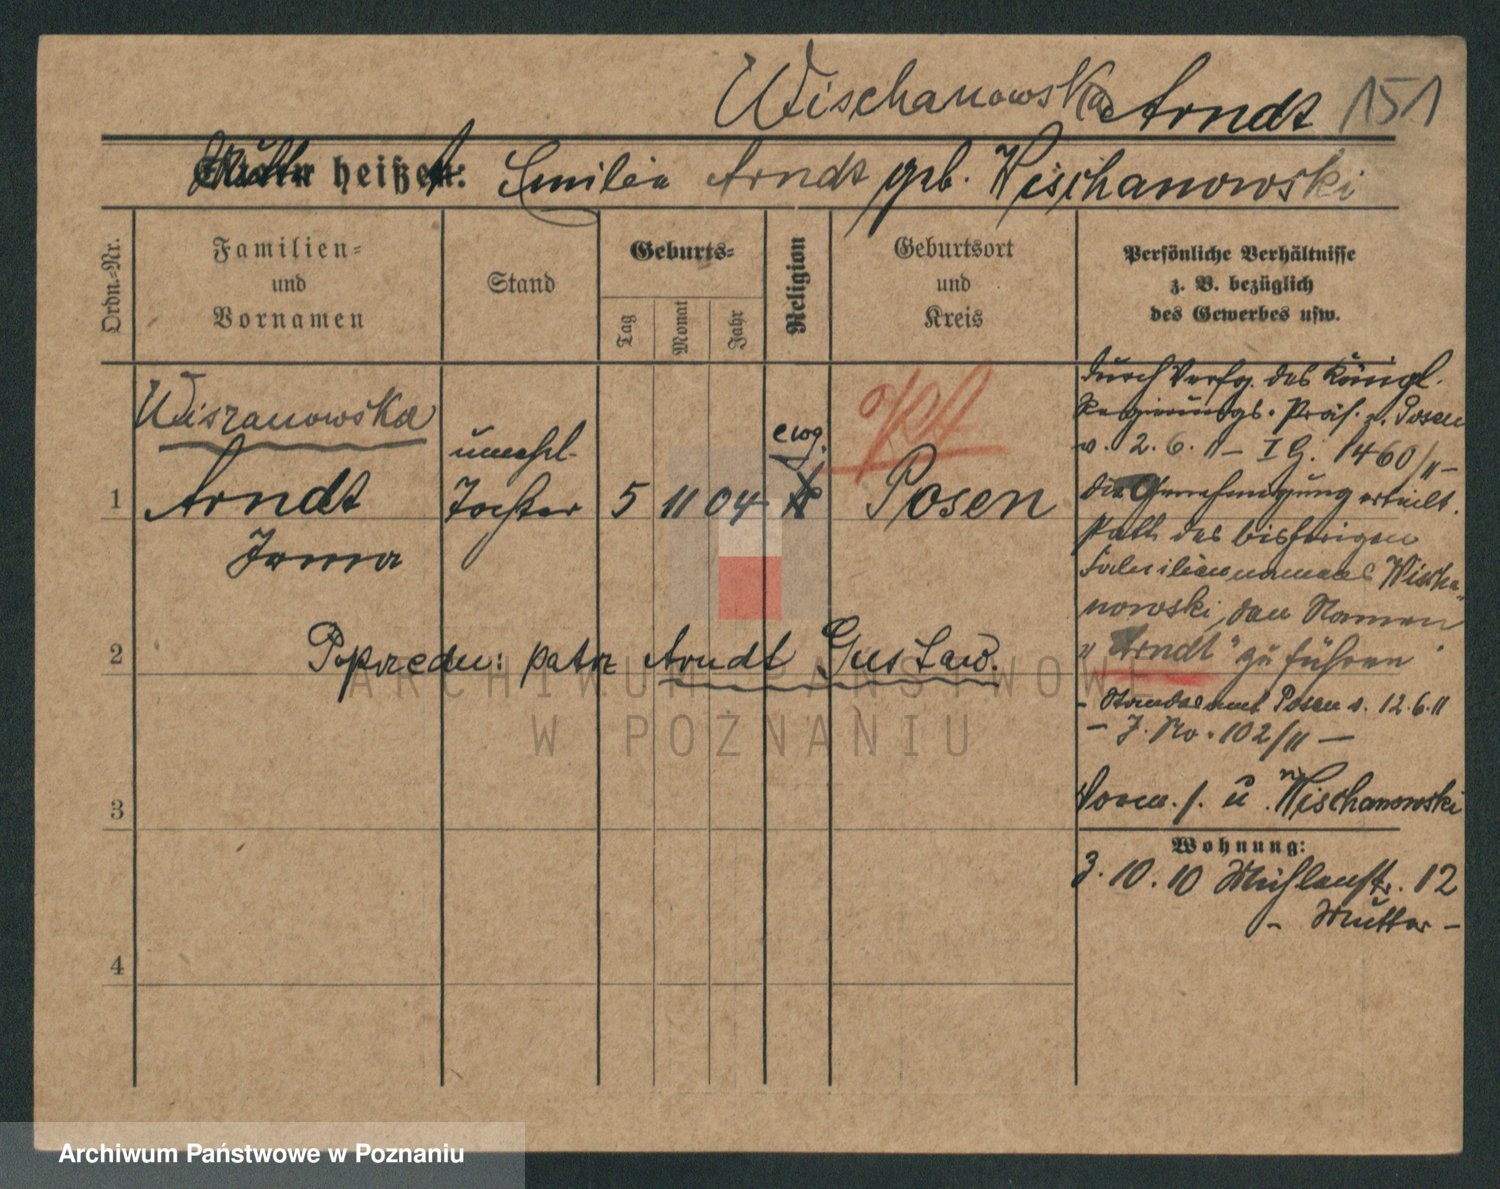 Wischanowska Arndt 151
Mutter heißt: Emilie Arndt geb. Wischanowski
Ordn.-Nr.
Familien-
und
Vornamen
Stand
Geburts-
Tag
Monat
Jahr
Religion
Geburtsort
und
Kreis
Persönliche Verhältnisse
z. B. bezüglich
des Gewerbes usw.
Wiszanowska
1 Arndt
Irma
unehel.
Tochter
5 11 04
evg.
Posen
2 Poprzedn: patrz Arndt Gustaw.
3
4
durch Verfg. des Königl.
Regierungs-Präs. z. Posen
v. 2. 6. 11 – I G. 1460/11 –
die Genehmigung erteilt.
statt des bisherigen
Familiennamens Wischa-
nowski, den Namen
"Arndt" zu führen
- Standesamt Posen v. 12.6.11
- J. No. 102/11 -
Vorm. f. u. Wischanowski
Wohnung:
3. 10. 10 Mühlenstr. 12
- Mutter -
ARCHIWUM PAŃSTWOWE
W POZNANIU
Archiwum Państwowe w Poznaniu